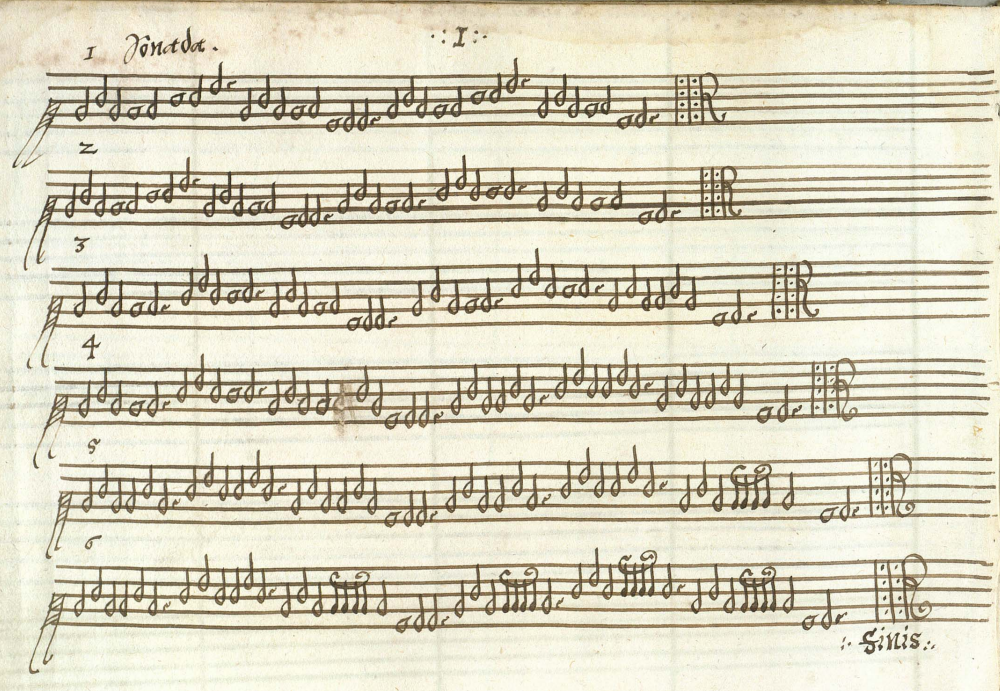 1 Sonada.
·:I:·
2
3
4
5
6
:·Finis·: